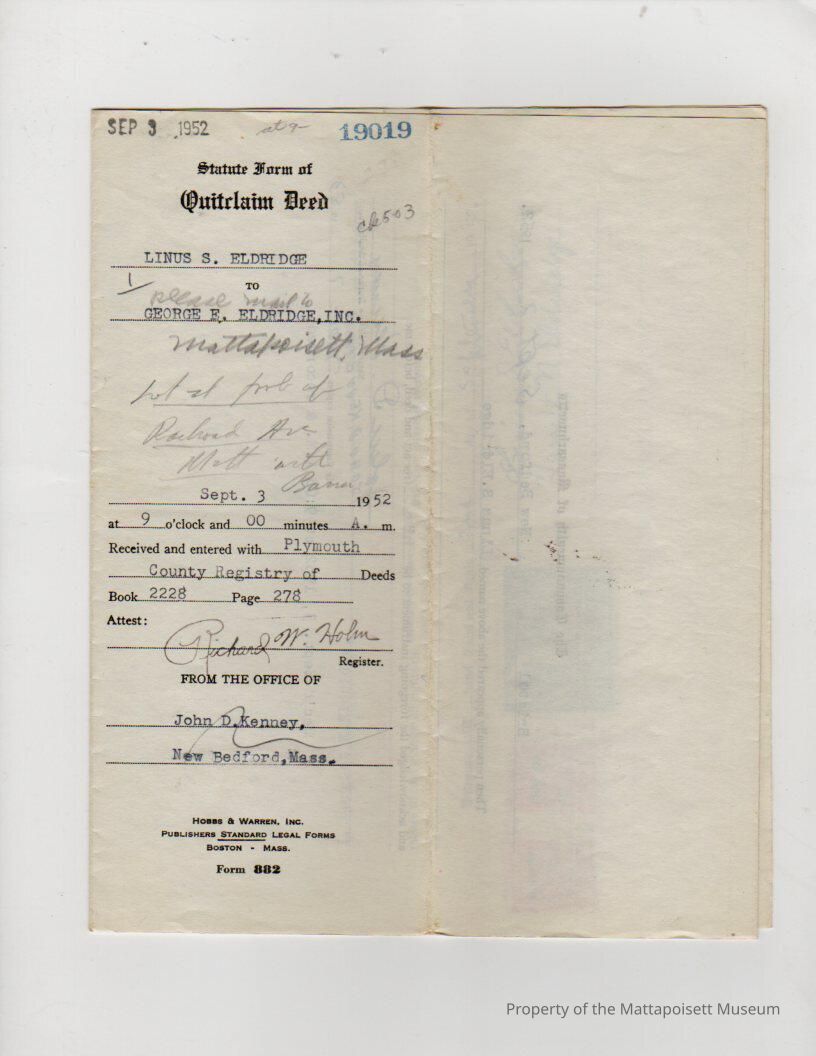 SEP 3 1952 at 9 19019
Statute Form of
Quitclaim Deed
ck503
LINUS S. ELDRIDGE
1
TO
please mail to
GEORGE E. ELDRIDGE,INC.
Mattapoisett, Mass
Lot at
Railroad Ave
Matt with
Sept. 3 1952
at 9 o'clock and 00 minutes A. m.
Received and entered with Plymouth
County Registry of Deeds
Book 2228 Page 278
Attest:
Richard W. Holm
Register.
FROM THE OFFICE OF
John D.Kenney,
New Bedford,Mass.
HOBBS & WARREN, INC.
PUBLISHERS STANDARD LEGAL FORMS
BOSTON - MASS.
Form 882
Property of the Mattapoisett Museum